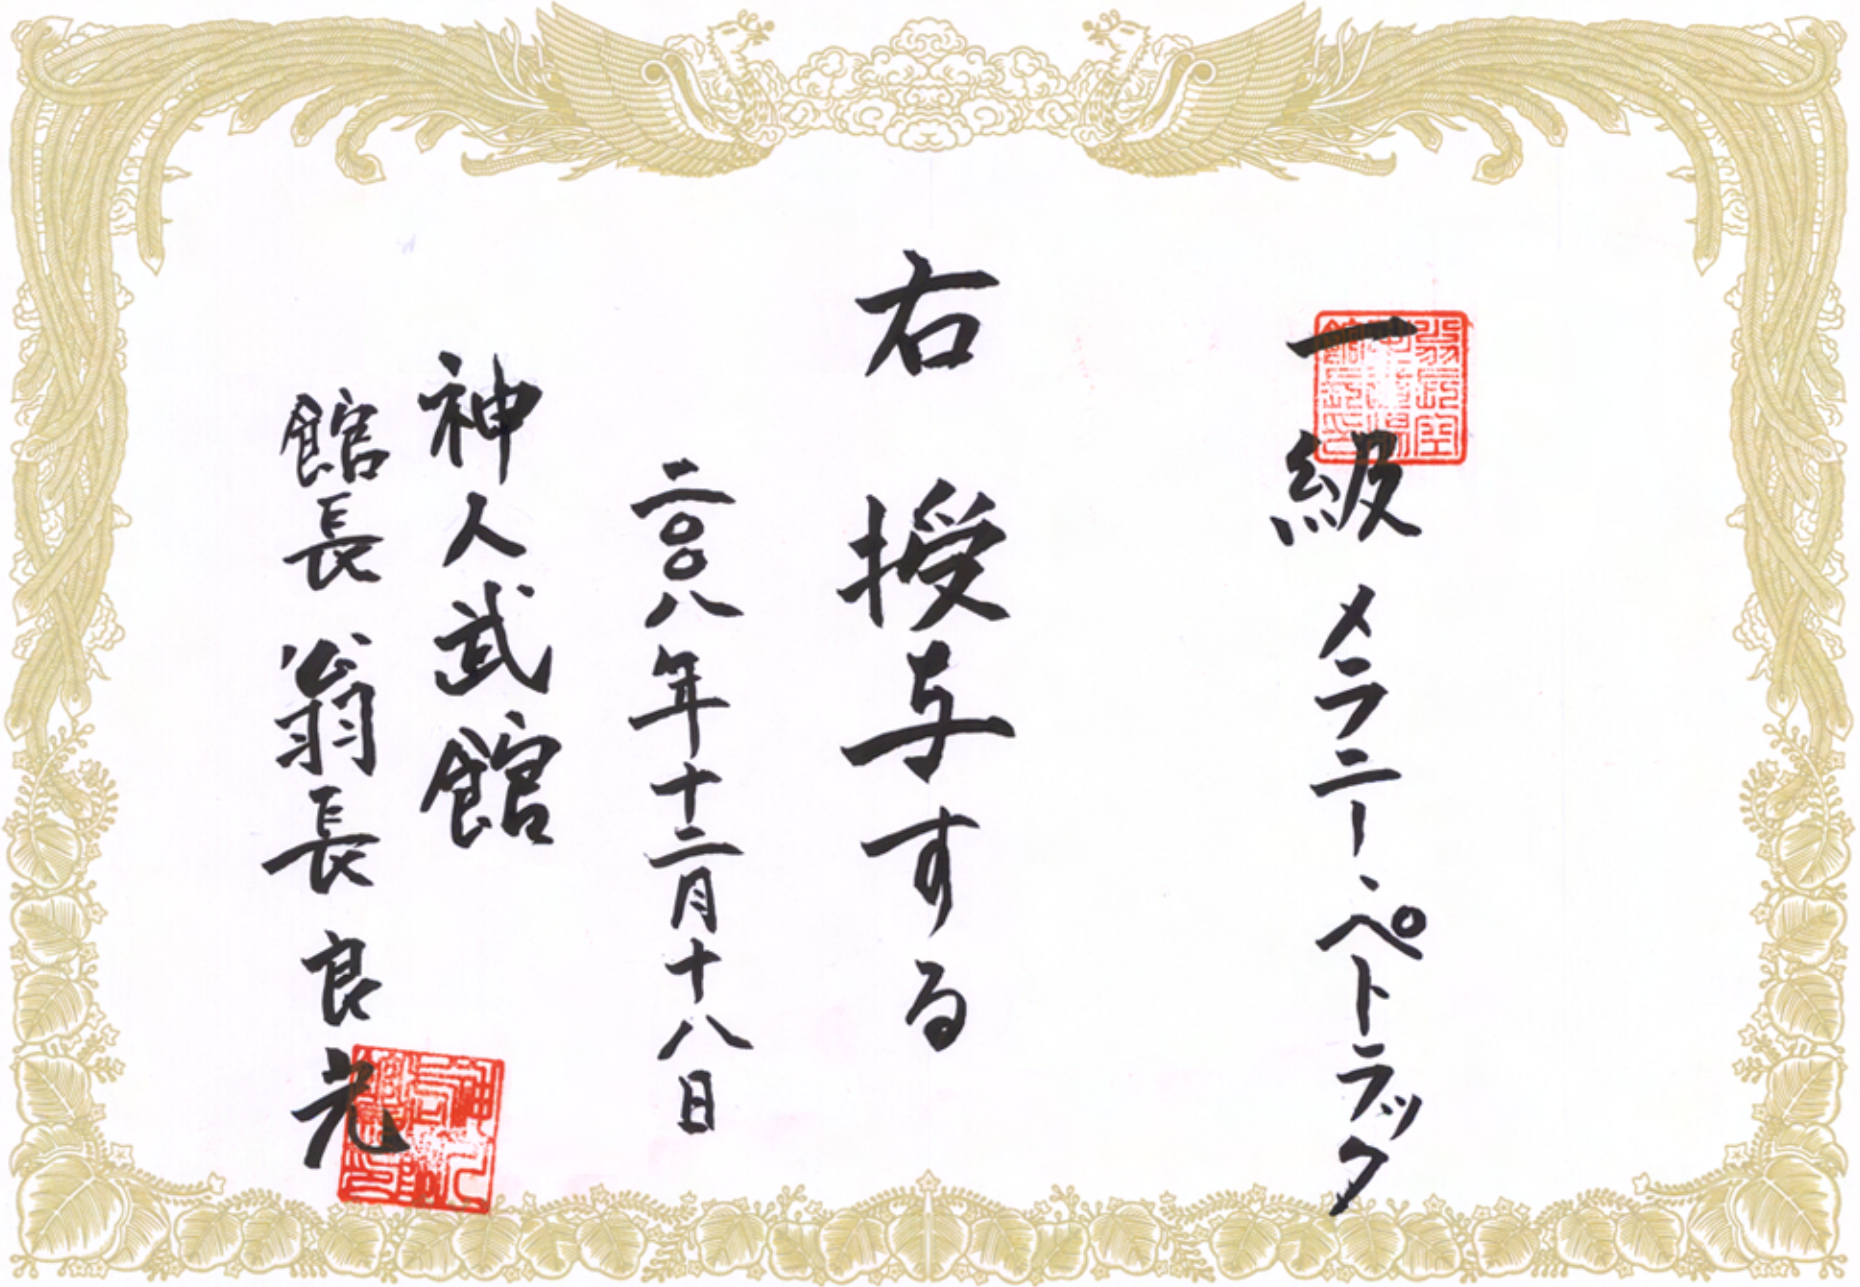 一級 メラニー、ペトラック
右 授与する
二〇〇八年十二月十八日
神人武館
館長 翁長良光